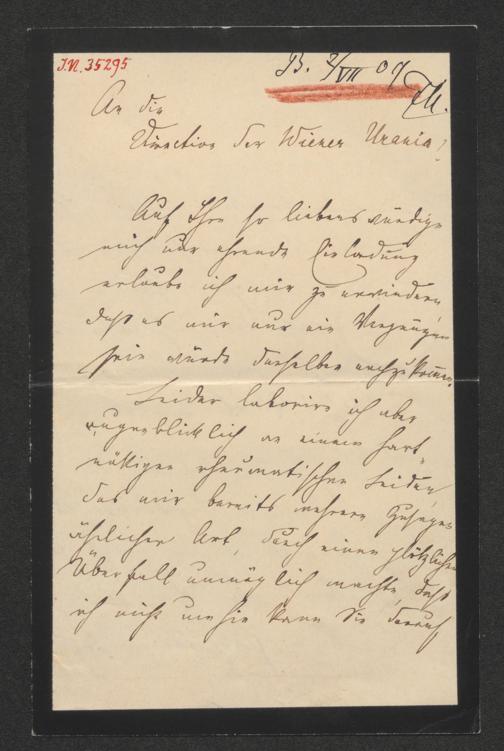 I.N. 35295
B. 2/VII 09
An die
Direction der Wiener Urania!
Auf Ihre so liebenswürdige
mich nur ehrende Einladung
erlaube ich mir zu erwiedern,
daß es mir nur ein Vergnügen
sein würde derselben nachzukommen.
Leider laborire ich aber
augenblicklich an einem hart-
näckigen rheumatischen Leiden,
das mir bereits mehrere Zusagen
ähnlicher Art, durch einen plötzlichen
Überfall unmöglich machte, daß
ich nicht umhin kann Sie darauf